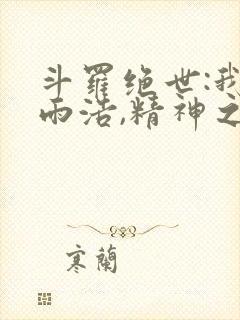 斗羅绝世:我
而浩,精神之
寒蘭